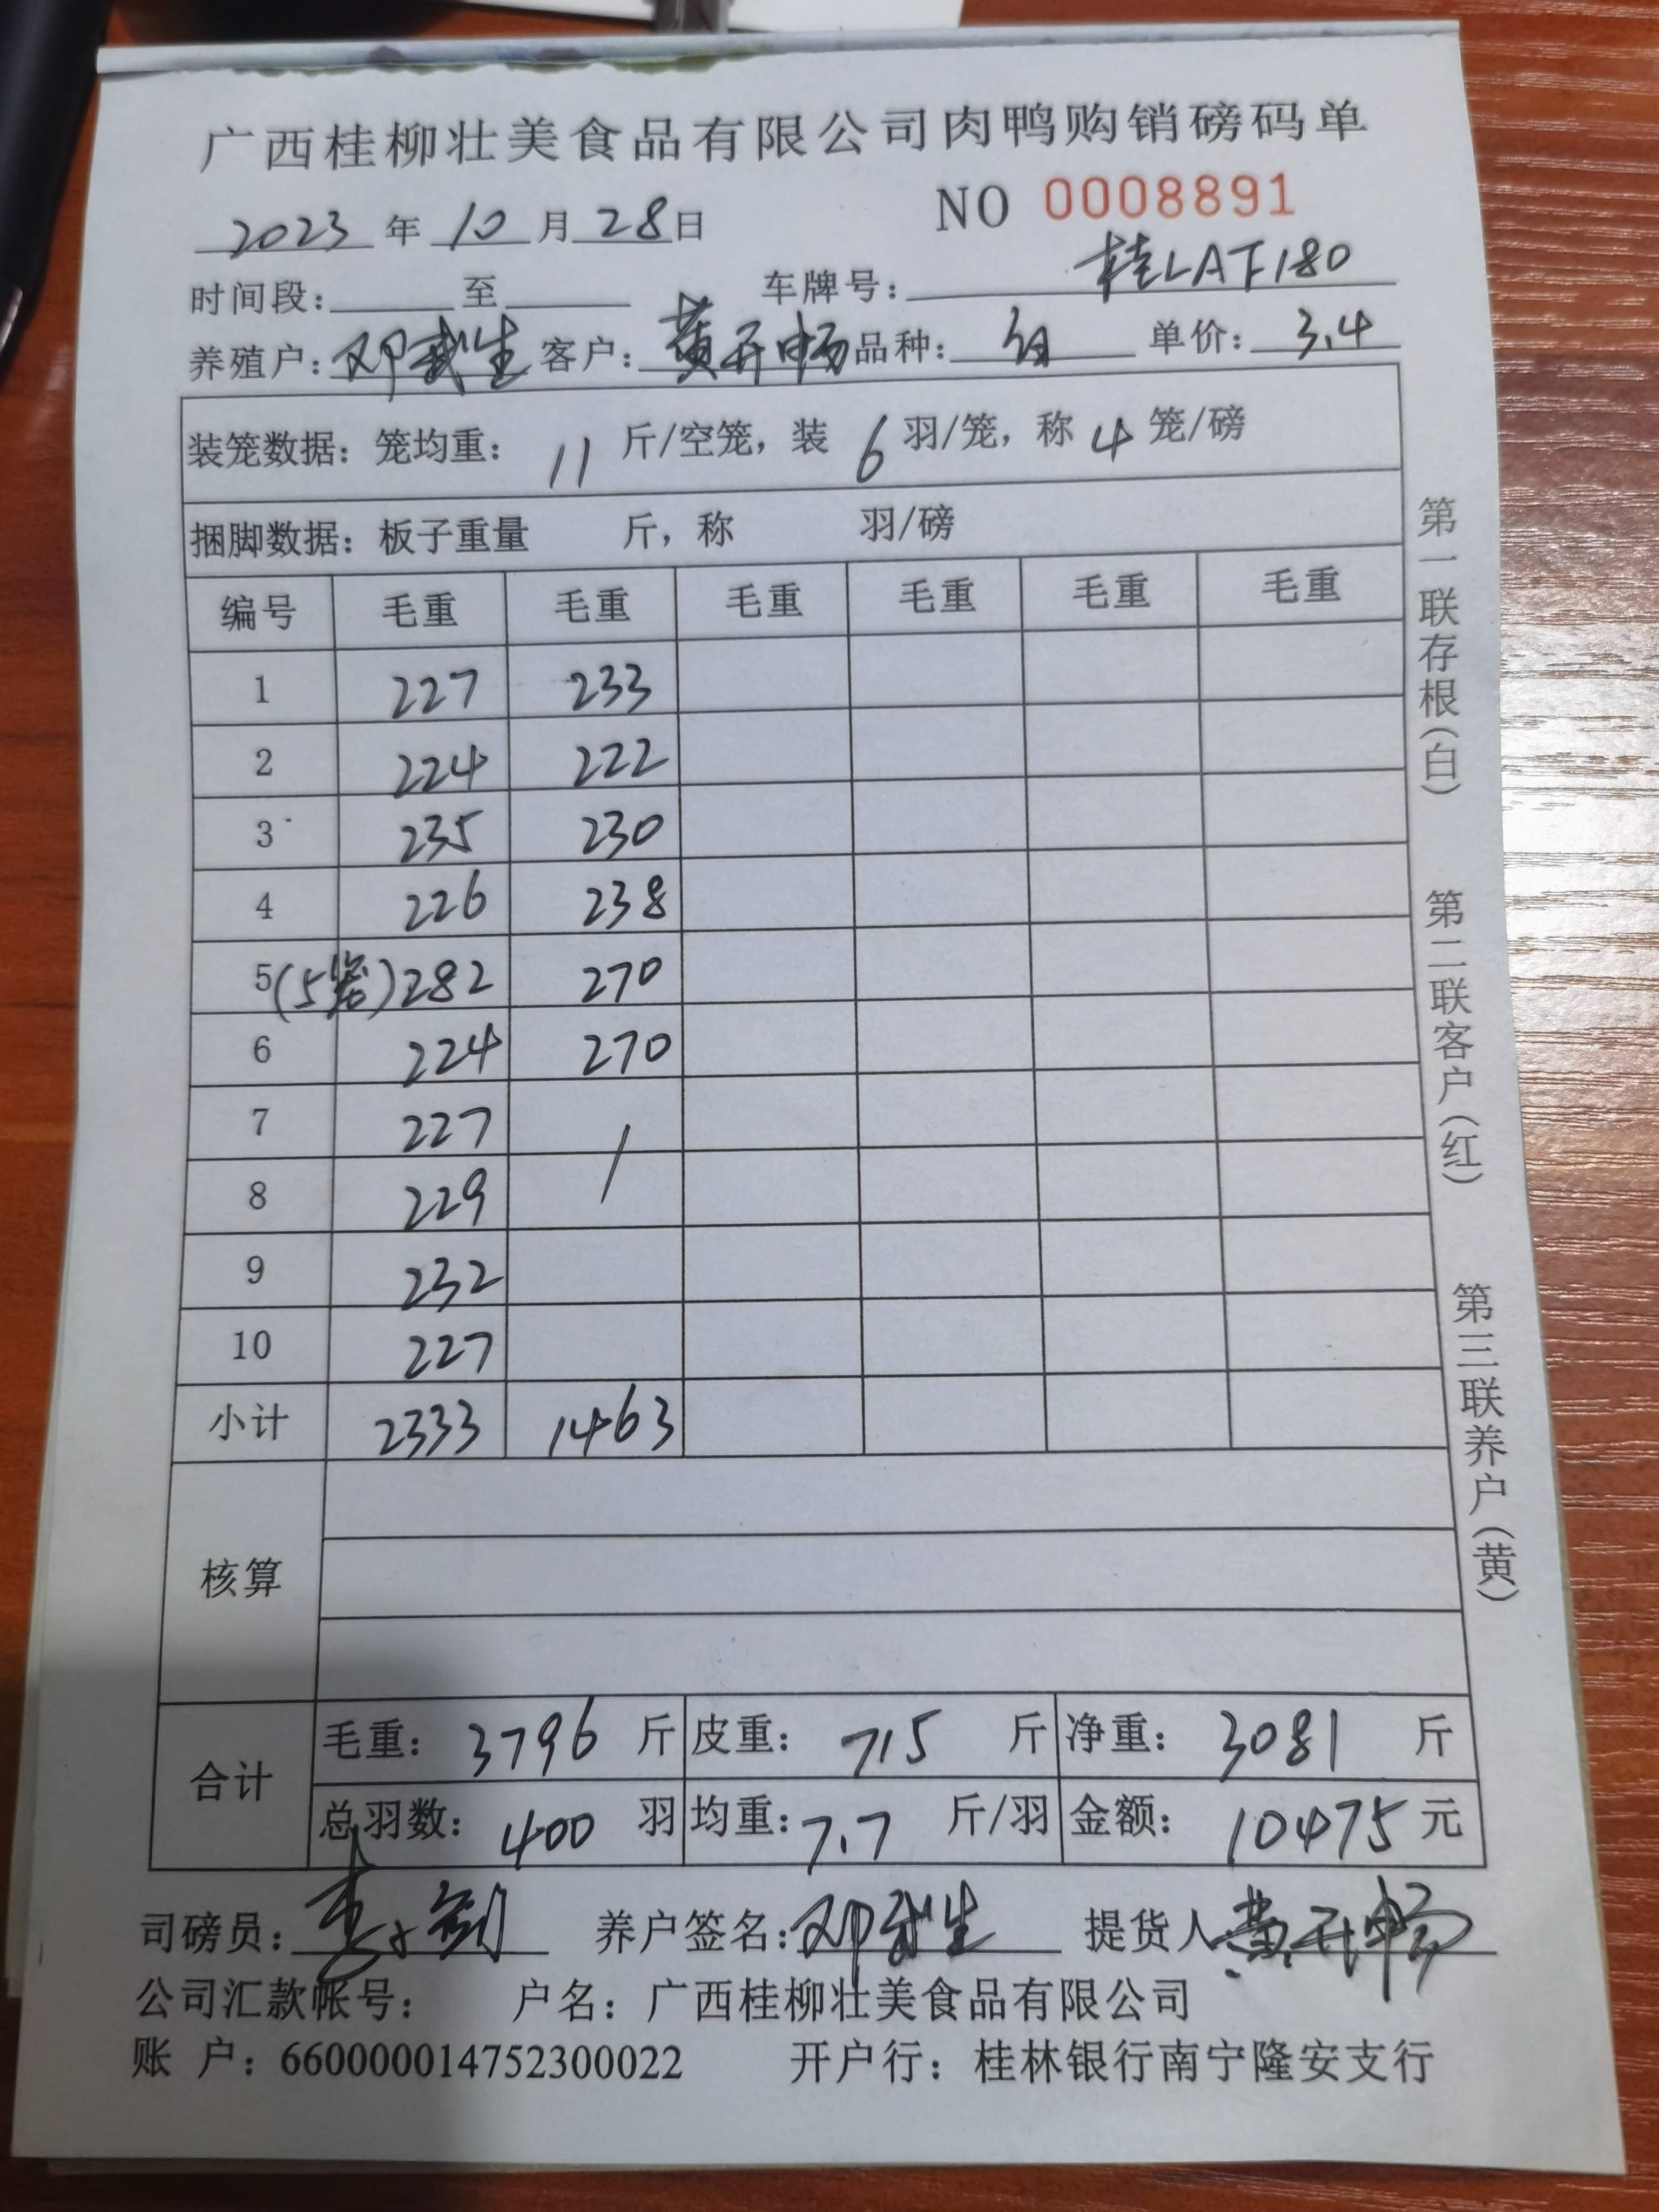 广西桂柳壮美食品有限公司肉鸭购销磅码单
NO 0008891
2023 年 10 月 28 日
时间段: 至 车牌号: 桂LAF180
养殖户: 邓武生 客户: 黄开畅 品种: 白 单价: 3.4
装笼数据: 笼均重: 11 斤/空笼, 装 6 羽/笼, 称 4 笼/磅
捆脚数据: 板子重量 斤, 称 羽/磅
编号 毛重 毛重 毛重 毛重 毛重 毛重
1 227 233
2 224 222
3 235 230
4 226 238
5 (5笼) 282 270
6 224 270
7 227 /
8 229
9 232
10 227
小计 2333 1463
核算
合计 毛重: 3796 斤 皮重: 715 斤 净重: 3081 斤
总羽数: 400 羽 均重: 7.7 斤/羽 金额: 10475 元
司磅员: 养户签名: 邓武生 提货人 黄开畅
公司汇款帐号: 户名: 广西桂柳壮美食品有限公司
账 户: 660000014752300022 开户行: 桂林银行南宁隆安支行
第一联存根(白) 第二联客户(红) 第三联养户(黄)